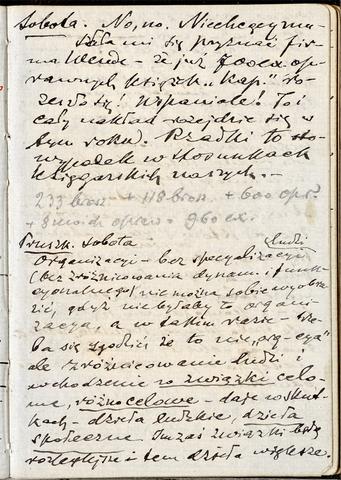 Sobota. No, no. Niechcący mu-
siała mi się przyznać fir-
ma Wende – że już 700 ex op-
rawnych książek „Kap." ro-
zeszły się! Wspaniale! To i
cały nakład rozejdzie się w
tym roku. Rzadki to
wypadek w stosunkach
księgarskich naszych. –
233 brosz + 118 brosz. + 600 opr.
+ 8 opraw. = 960 ex.
Pruszk. Sobota
ludzi
Organizacyi – bez specjalizacyi
(bez zróżnicowania dynam. i funk-
cyonalnego) nie można sobie wyobra-
zić, gdyż nie byłaby to organi-
zacya, a w takim razie trze-
ba się zgodzić że to nie „org-cya"
ale zróżnicowanie ludzi i
wchodzenie w związki celo-
we, różnocelowe – daje w skut-
kach – dzieła ludzkie, dzieła
społeczne. Im zaś związki będą
rozleglejsze i tem dzieła większe.